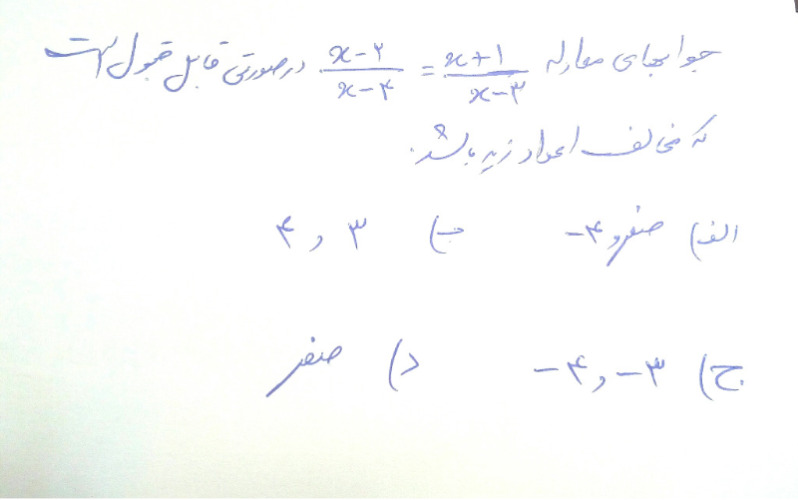 جوابهای معادله x+۱/x-۳ = x-۲/x-۴ در صورتی قابل قبول است
که مخالف اعداد زیر باشد.
الف) صفر و ۴- ب) ۳ و ۴
ج) ۳- و ۴- د) صفر